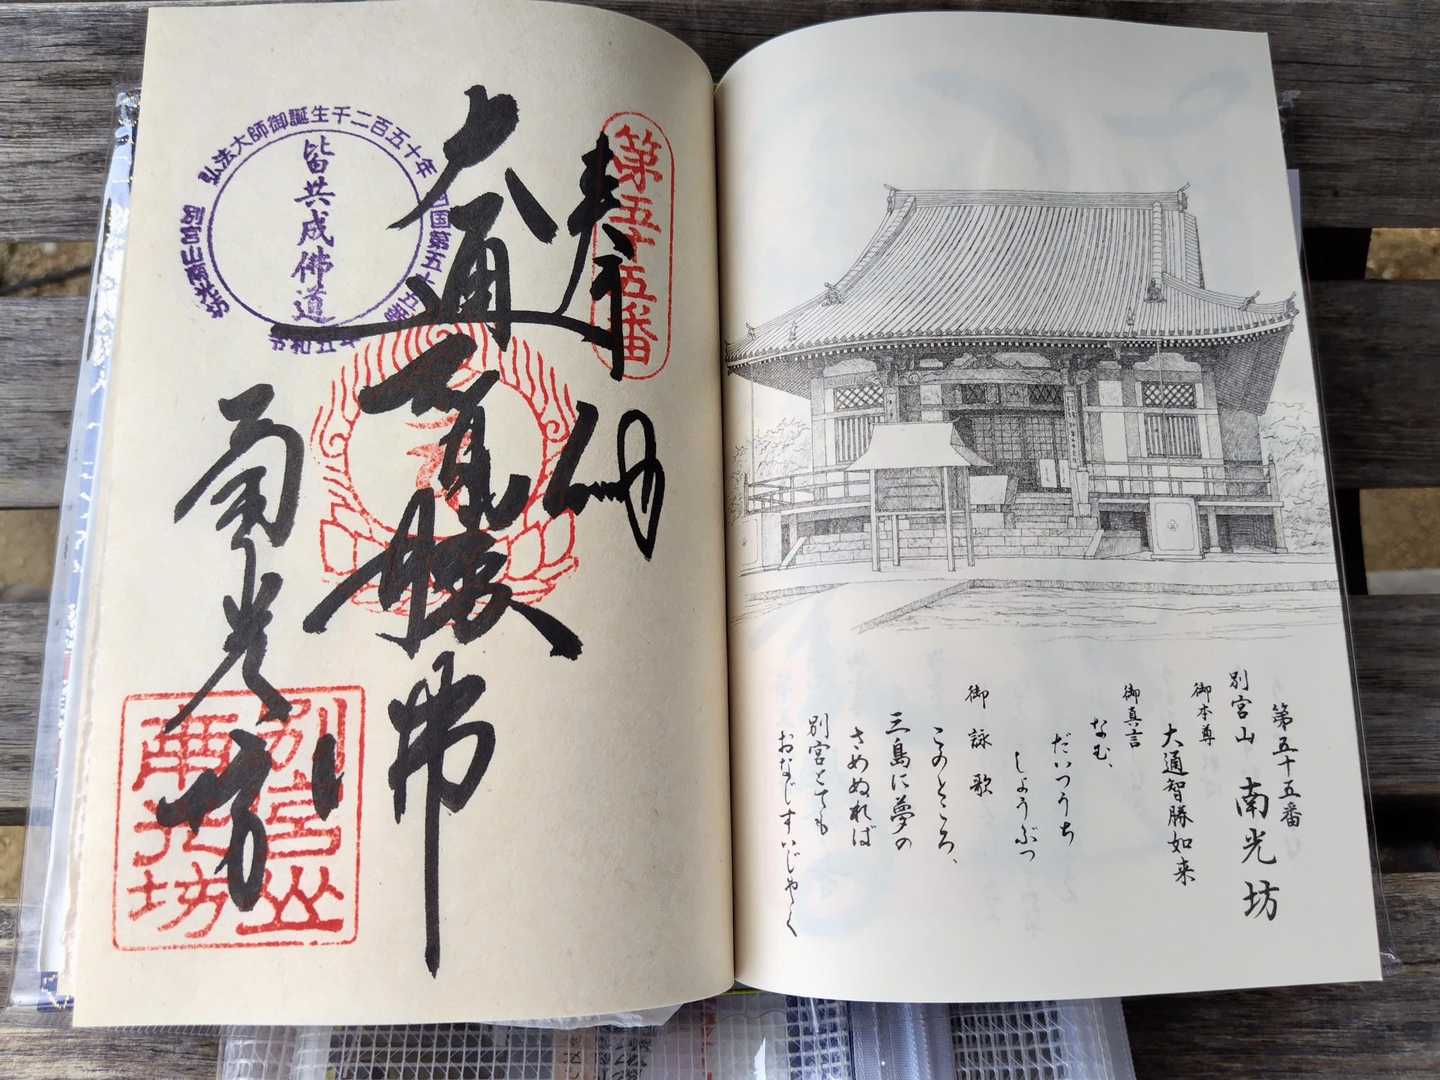 第五十五番
奉納
大通智勝佛
南光坊
弘法大師御誕生千二百五十年
四国第五十五番
別宮山南光坊
令和五年
皆共成佛道
別宮山
南光坊
第五十五番
別宮山 南光坊
御本尊
大通智勝如来
御真言
なむ、
だいつうち
しょうぶつ
御詠歌
このところ、
三島に夢の
さめぬれば
別宮とても
おなじすいじゃく